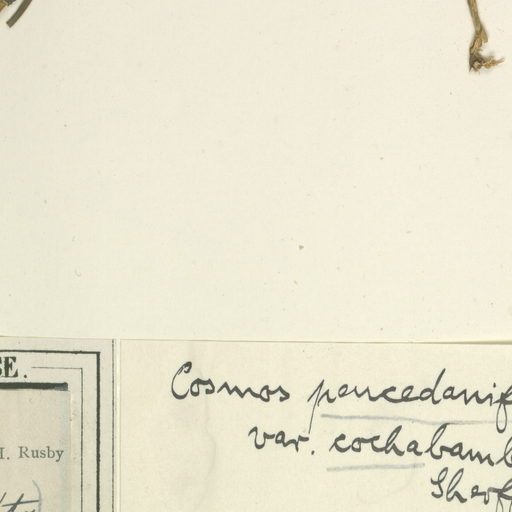 SE.
H. Rusby
Cosmos peucedanif
var. cochabamb
Sherff